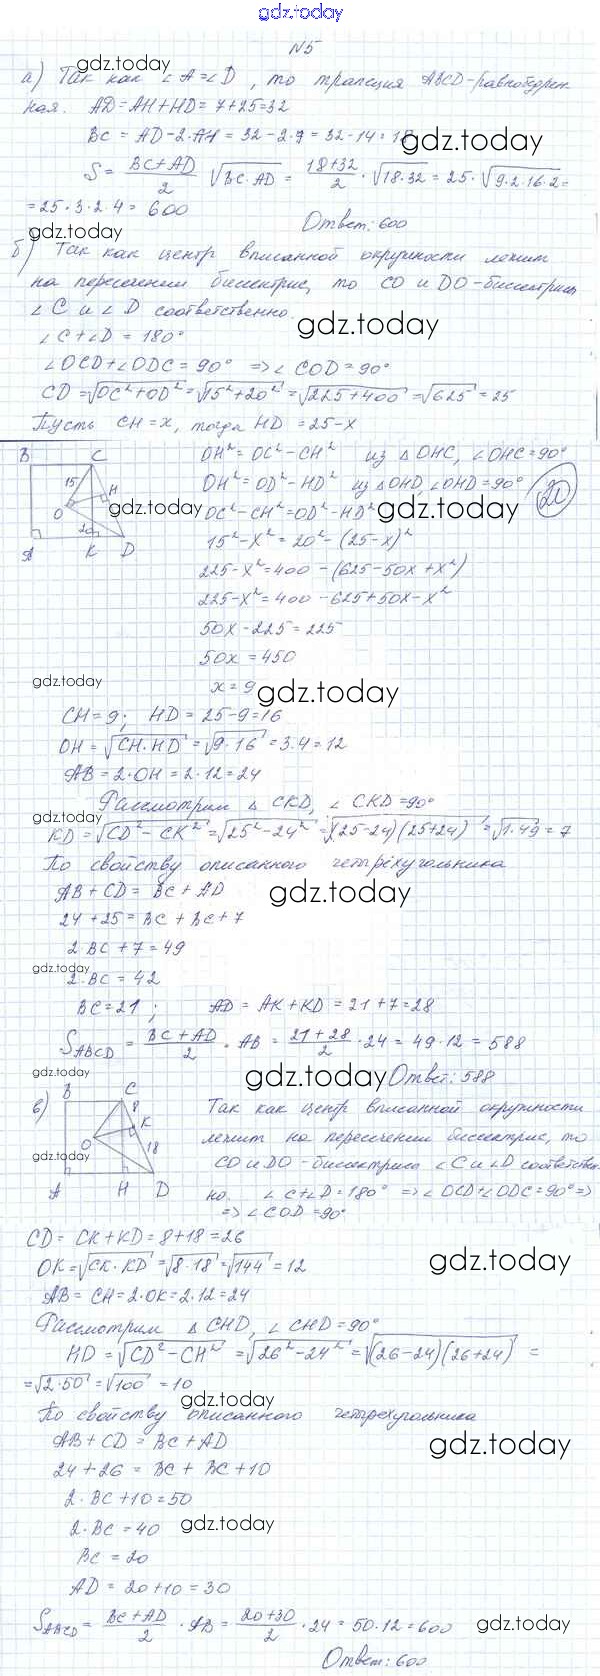 gdz.today
№5
а) Так как ∠A=∠D, то трапеция ABCD-равнобедрен-
ная. AD=AH+HD=7+25=32
BC = AD-2·AH = 32-2·7 = 32-14 = 18
S = (BC+AD)/2 · √(BC·AD) = (18+32)/2 · √(18·32) = 25·√(9·2·16·2) =
= 25·3·2·4 = 600
Ответ: 600
б) Так как центр вписанной окружности лежит
на пересечении биссектрис, то CO и DO-биссектрисы
∠C и ∠D соответственно.
∠C+∠D = 180°
∠OCD+∠ODC = 90° ⇒ ∠COD = 90°
CD = √(OC²+OD²) = √(15²+20²) = √(225+400) = √625 = 25
Пусть CH = x, тогда HD = 25-x
OH² = OC²-CH² из △OHC, ∠OHC = 90°
OH² = OD²-HD² из △OHD, ∠OHD = 90°
OC²-CH² = OD²-HD²
15²-x² = 20²-(25-x)²
225-x² = 400-(625-50x+x²)
225-x² = 400-625+50x-x²
50x-225 = 225
50x = 450
x = 9
B C 15 H O 20 A K D
20
CH = 9; HD = 25-9 = 16
OH = √(CH·HD) = √(9·16) = 3·4 = 12
AB = 2·OH = 2·12 = 24
Рассмотрим △CKD, ∠CKD = 90°
KD = √(CD²-CK²) = √(25²-24²) = √((25-24)(25+24)) = √(1·49) = 7
По свойству описанного четырёхугольника
AB+CD = BC+AD
24+25 = BC+BC+7
2·BC+7 = 49
2·BC = 42
BC = 21; AD = AK+KD = 21+7 = 28
S_ABCD = (BC+AD)/2 · AB = (21+28)/2 · 24 = 49·12 = 588
Ответ: 588
в)
B C 8 K O 18 A H D
Так как центр вписанной окружности
лежит на пересечении биссектрис, то
CO и DO-биссектрисы ∠C и ∠D соответствен-
но. ∠C+∠D = 180° ⇒ ∠OCD+∠ODC = 90° ⇒
⇒ ∠COD = 90°
CD = CK+KD = 8+18 = 26
OK = √(CK·KD) = √(8·18) = √144 = 12
AB = CH = 2·OK = 2·12 = 24
Рассмотрим △CHD, ∠CHD = 90°
HD = √(CD²-CH²) = √(26²-24²) = √((26-24)(26+24)) =
= √(2·50) = √100 = 10
По свойству описанного четырехугольника
AB+CD = BC+AD
24+26 = BC+BC+10
2·BC+10 = 50
2·BC = 40
BC = 20
AD = 20+10 = 30
S_ABCD = (BC+AD)/2 · AB = (20+30)/2 · 24 = 50·12 = 600
Ответ: 600